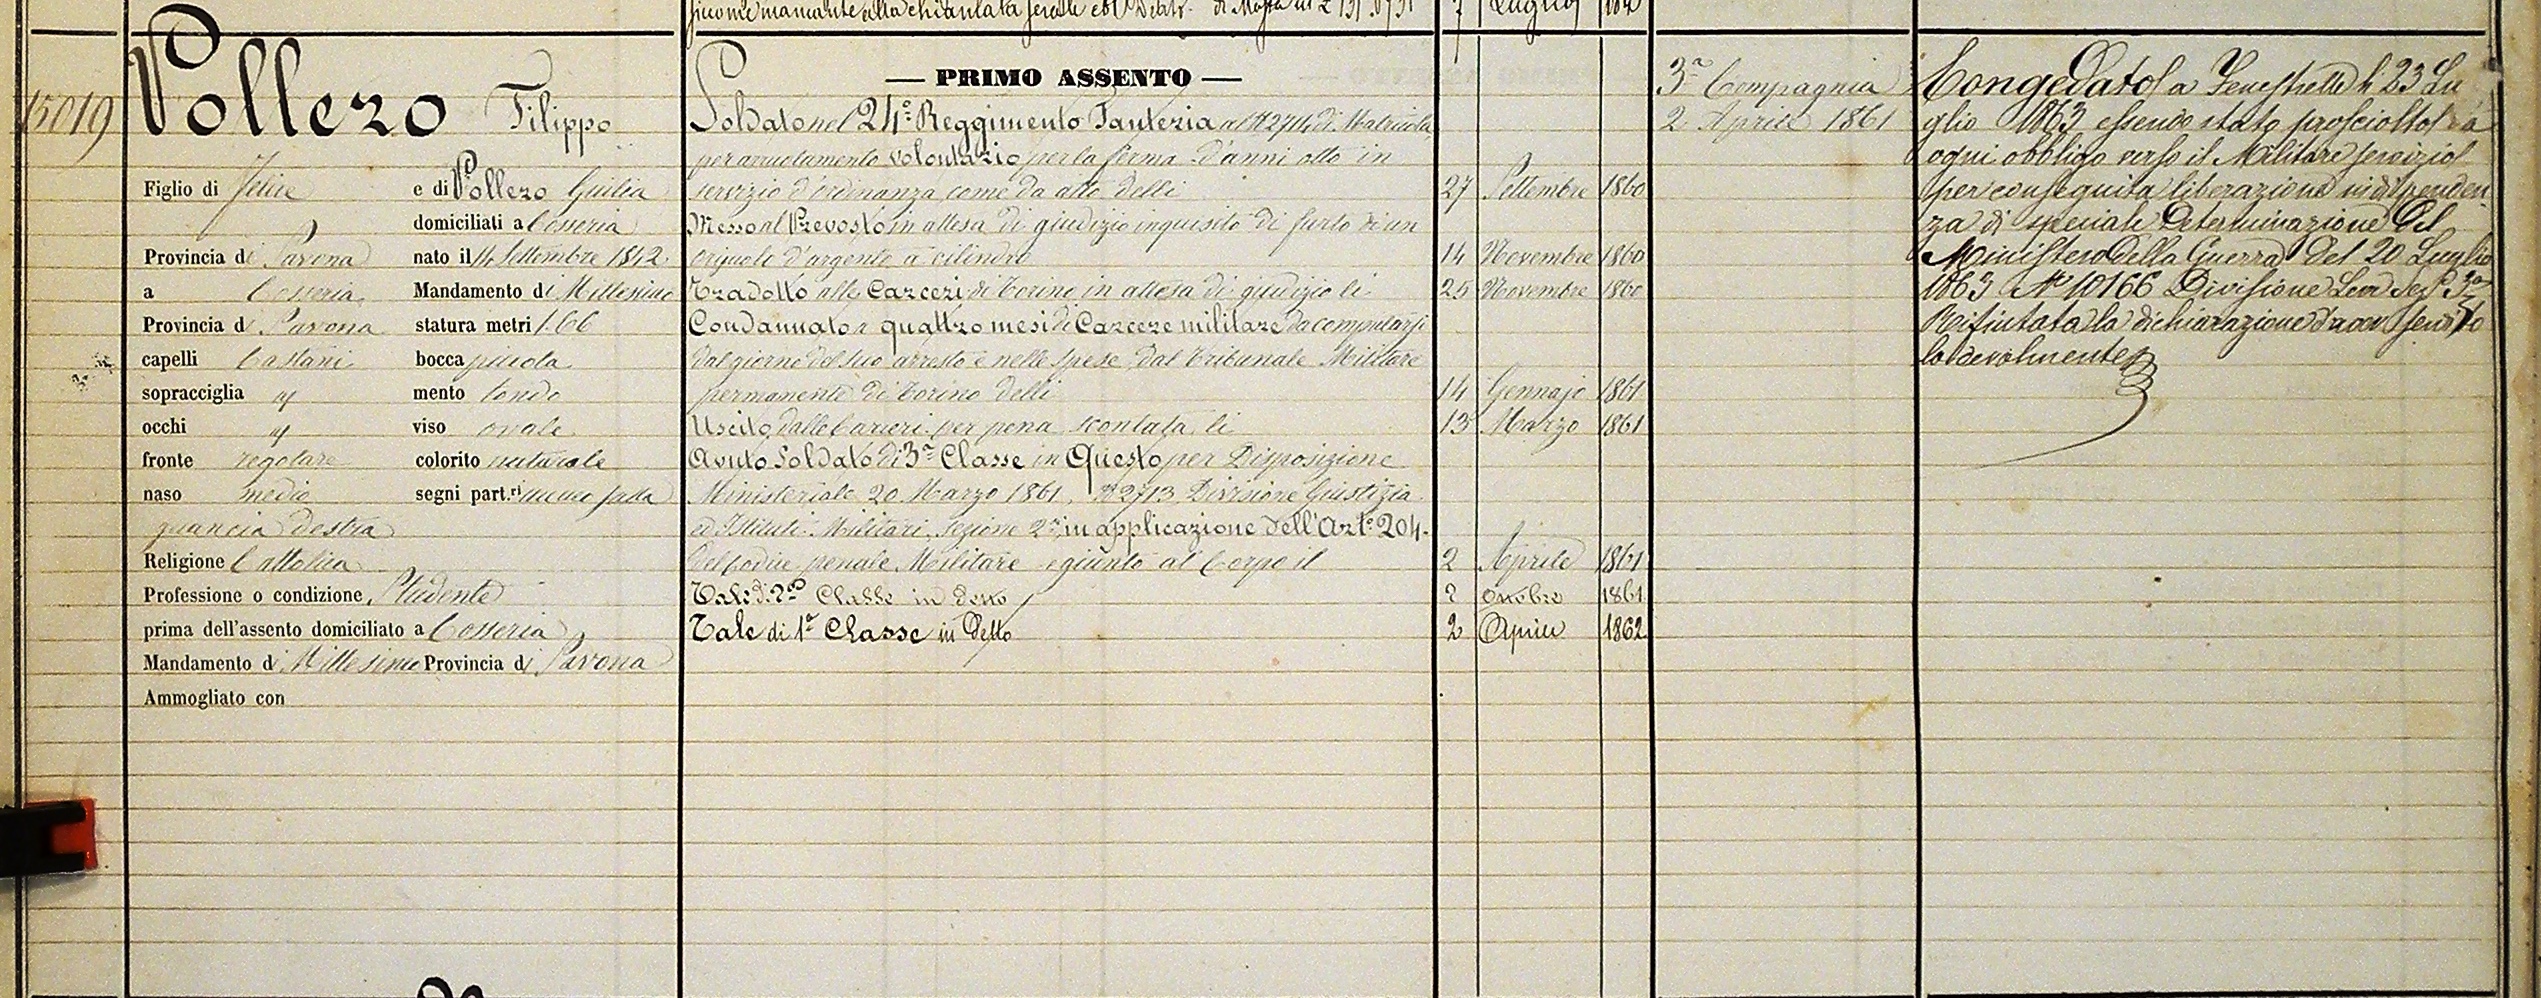 Luglio
15019
Pollero Filippo
Figlio di Felice e di Pollero Giulia
domiciliati a Cosseria
Provincia di Savona nato il 14 Settembre 1842
a Cosseria Mandamento di Millesimo
Provincia di Savona statura metri 1.66
capelli Castani bocca piccola
sopracciglia " mento tondo
occhi " viso ovale
fronte regolare colorito naturale
naso medio segni part.ri neneo sulla
guancia destra
Religione Cattolica
Professione o condizione Studente
prima dell'assento domiciliato a Cosseria
Mandamento di Millesimo Provincia di Savona
Ammogliato con
— PRIMO ASSENTO —
Soldato nel 24º Reggimento Fanteria al Nº 2714 di Matricola
per arruolamento volontario per la ferma d'anni otto in
servizio d'ordinanza come da atto delli 27 Settembre 1860
Messo al Prevosto in attesa di giudizio inquisito di furto di un
oriuolo d'argento a cilindro 14 Novembre 1860
Tradotto alle Carceri di Torino in attesa di giudizio li 25 Novembre 1860
Condannato a quattro mesi di Carcere militare da computarsi
dal giorno del suo arresto e nelle spese dal Tribunale Militare
permanente di Torino delli 14 Gennajo 1861
Uscito dalle Carceri per pena scontata li 13 Marzo 1861
Avuto Soldato di 3ª Classe in Questo per Disposizione
Ministeriale 20 Marzo 1861 Nº 2713 Divisione Giustizia
ed Istituti Militari, Sezione 2ª in applicazione dell'Artº 204.
del Codice penale Militare e giunto al Corpo il 2 Aprile 1861
Tale di 2ª Classe in detto 2 Ottobre 1861
Tale di 1ª Classe in Detto 2 Aprile 1862
3ª Compagnia
2 Aprile 1861
Congedato a Fenestrelle li 23 Lu
glio 1863 essendo stato prosciolto da
ogni obbligo verso il Militare servizio
per conseguita liberazione in dipenden
za di speciale Determinazione del
Ministero della Guerra del 20 Luglio
1863 Nº 10166 Divisione Leva Sez. 3ª
Rifiutata la dichiarazione d'aver servito
lodevolmente